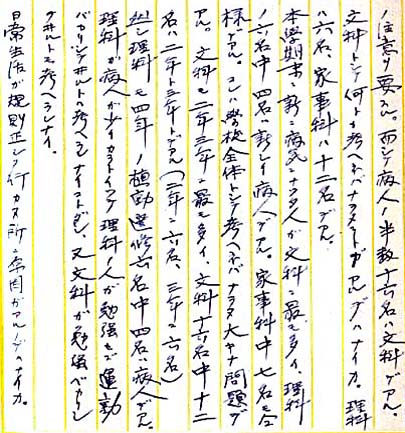 ノ注意ヲ要スル。而シテ病人ノ半数十六名ハ文科デアル。
文科トシテ何トカ考ヘネバナラヌトガアルデハナイカ。理科
ハ六名、家事科ハ十二名デアル。
本学期末ニ新ニ病気ニナッタ人が文科ニ最モ多イ、理科
ノ六名中四名ハ新シイ病人デアル。家事科中七名モ今
様デアル。コレハ学校全体トシテ考ヘネバナラヌ大キナ問題デ
アル。文科モ二年三年最モ多イ。文科十六名中十二
名ハ二年ト三年トデアル(二年ニ六名、三年ニ六名)
然シ理科モ四年ノ植動選修六名中四名ハ病人デアル。
理科ガ病人ガ少イカライツテ理科ノ人ガ勉強モセズ運動
バカリシテ井ルトハ考ヘラレナイコトダシ、又文科ガ勉強ベカリシ
テ井ルトモ考ヘラレナイ。
日常生活が規則正シク行カヌ所ニ原因ガアルノデハナイカ。